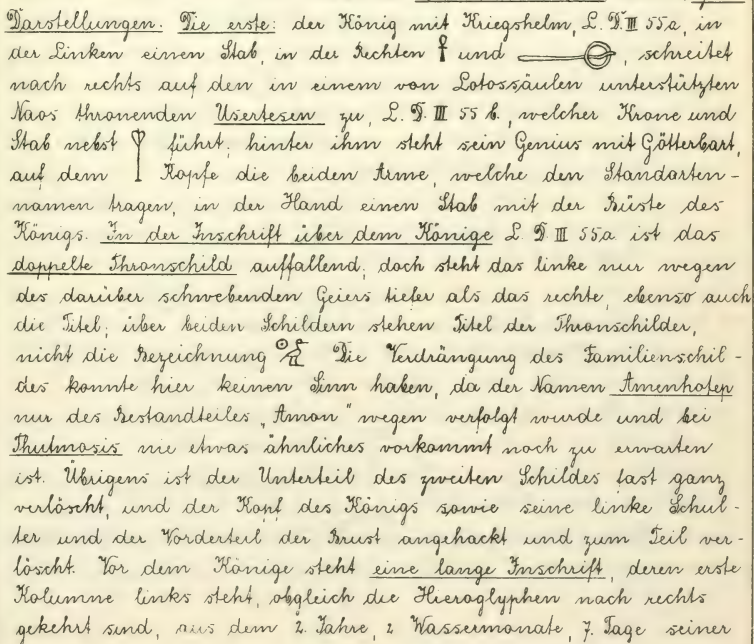 Darstellungen. Die erste: der König mit Kriegshelm, L. D. III 55a, in
der Linken einen Stab, in der Rechten 𓋹 und 𓌉, schreitet
nach rechts auf den in einem von Lotossäulen unterstützten
Naos thronenden Usertesen zu, L. D. III 55 b., welcher Krone und
Stab nebst 𓌀 führt; hinter ihm steht sein Genius mit Götterbart,
auf dem Kopfe die beiden Arme, welche den Standarten-
namen tragen, in der Hand einen Stab mit der Büste des
Königs. In der Inschrift über dem Könige L. D. III 55a ist das
doppelte Thronschild auffallend, doch steht das linke nur wegen
des darüber schwebenden Geiers tiefer als das rechte, ebenso auch
die Titel; über beiden Schildern stehen Titel der Thronschilder,
nicht die Bezeichnung Die Verdrängung des Familienschil-
des konnte hier keinen Sinn haben, da der Namen Amenhotep
nur des Bestandteiles „Amon" wegen verfolgt wurde und bei
Thutmosis nie etwas ähnliches vorkommt noch zu erwarten
ist. Übrigens ist der Unterteil des zweiten Schildes fast ganz
verlöscht, und der Kopf des Königs sowie seine linke Schul-
ter und der Vorderteil der Brust angehackt und zum Teil ver-
löscht. Vor dem Könige steht eine lange Inschrift, deren erste
Kolumne links steht, obgleich die Hieroglyphen nach rechts
gekehrt sind, aus dem 2. Jahre, 2 Wassermonate, 7. Tage seiner